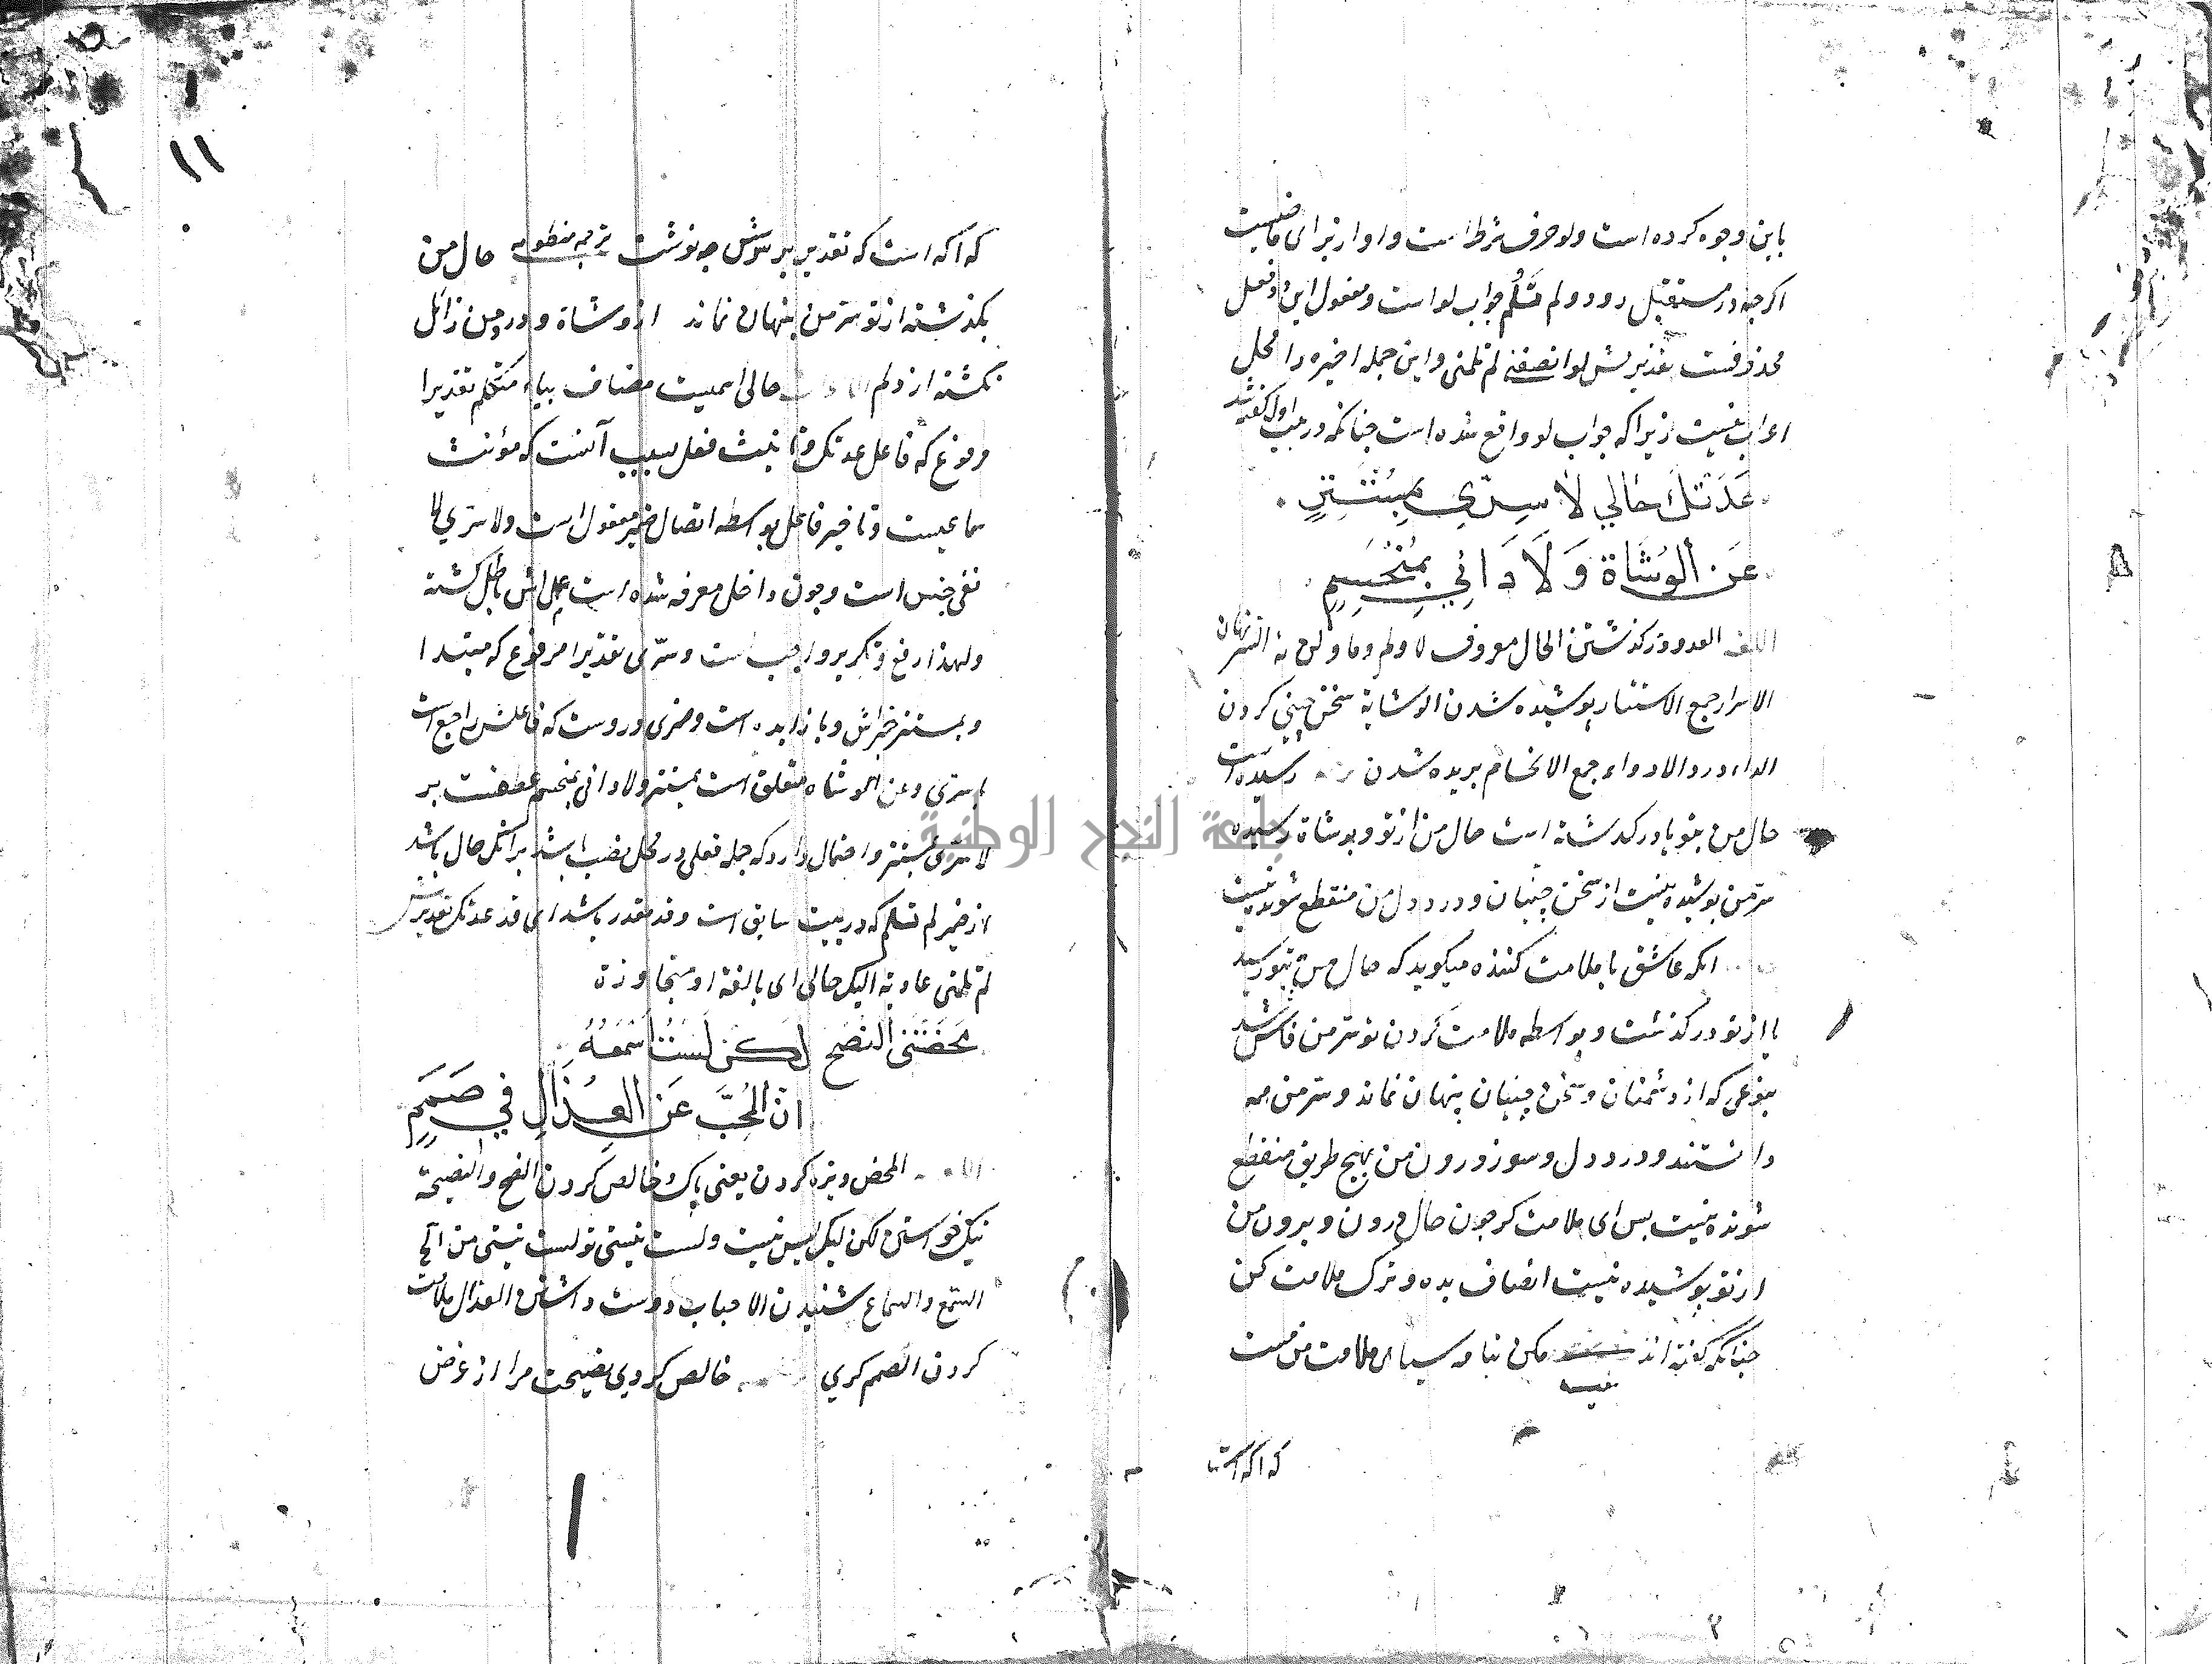 باین وجوه کرده است ولو حرف شرط است واو از برای ماضیست
اکرچه در مستقبل رود ولم تسلم جواب لو است ومفعول این فعل
محذوفست تقدیرش لو انصفت لم تلمنی واین جمله اخیره را محل
اعراب نیست زیرا که جواب لو واقع شده است چنانکه در بیت اول گفته شد
عَدَتْكَ حَالِي لَا سِرّي بِمُسْتَتِرٍ
عَنِ الْوُشَاةِ وَلَا دَائِي بِمُنْحَسِمِ
العدو درکذشتن الحال معروف لا ولم وما ولن نه السر نهان
الاسرار جمع الاستتار پوشیده شدن الوشایة سخن چینی کردن
الداء درد الادواء جمع الانحسام بریده شدن رسیده است
حال من بتو یا درکذشته است حال من از تو وبوشاة رسیده
سر من پوشیده نیست از سخن چینان ودرد دل من منقطع شونده نیست
انکه عاشق با ملامت کننده میکوید که حال من بتو رسید
یا از تو درکذشت وبواسطه ملامت کردن تو سر من فاش شد
بنوعی که از دشمنان وسخن چینان پنهان نماند وسر من همه
دانستند ودرد دل وسوز درون من بهیچ طریق منقطع
شونده نیست پس ای ملامت کر چون حال درون وبیرون من
از تو پوشیده نیست انصاف بده وترک ملامت کن
چنانکه کفته اند مکن بنامه سیاهی ملامت من مست
بیت
که اکه است
۱۱
که اکه است که تقدیر بر سرش چه نوشت ترجمه منظومه حال من
بکذشته از تو سر من پنهان نماند از وشاة ودرد من زائل
نکشته از دلم حالی اسمیست مضاف بیاء متکلم تقدیرا
مرفوع که فاعل عدتک وتانیث فعل بسبب آنست که مؤنث
سماعیست وتاخیر فاعل بواسطه اتصال ضمیر مفعول است ولا سری لا
نفی جنس است وچون داخل معرفه شده است عملش باطل کشته
ولهذا رفع وتکریر واجب است وسری تقدیرا مرفوع که مبتدا
وبمستتر خبرش وبا زایده است وضمیری دروست که فاعلش راجع است
بسری وعن الوشاه متعلق است بمستتر ولا دائی بمنحسم عطفست بر
لا سری بمستتر واحتمال دارد که جمله فعلی در محل نصب باشد برانکه حال باشد
از ضمیر لم تسلم که در بیت سابق است وقد مقدر باشد ای قد عدتک تقدیرش
لم تلمنی عادیة الیک حالی ای بالغة او متجاوزة
مَحَضْتَنِى النُّصْحَ لَكِنْ لَسْتُ أَسْمَعُهُ
اِنَّ الْمُحِبَّ عَنِ الْعُذَّالِ فِي صَمَمِ
المحض ویژه کردن یعنی پاک وخالص کردن النصح والنصیحة
نیک خواستن لکن لیک لیس نیست ولست نیستی تو لست نیستم من
السمع والسماع شنیدن الاحباب دوست داشتن العذال ملامت
کردن الصمم کری خالص کردی نصیحت مرا از غرض
جامعة النجاح الوطنية